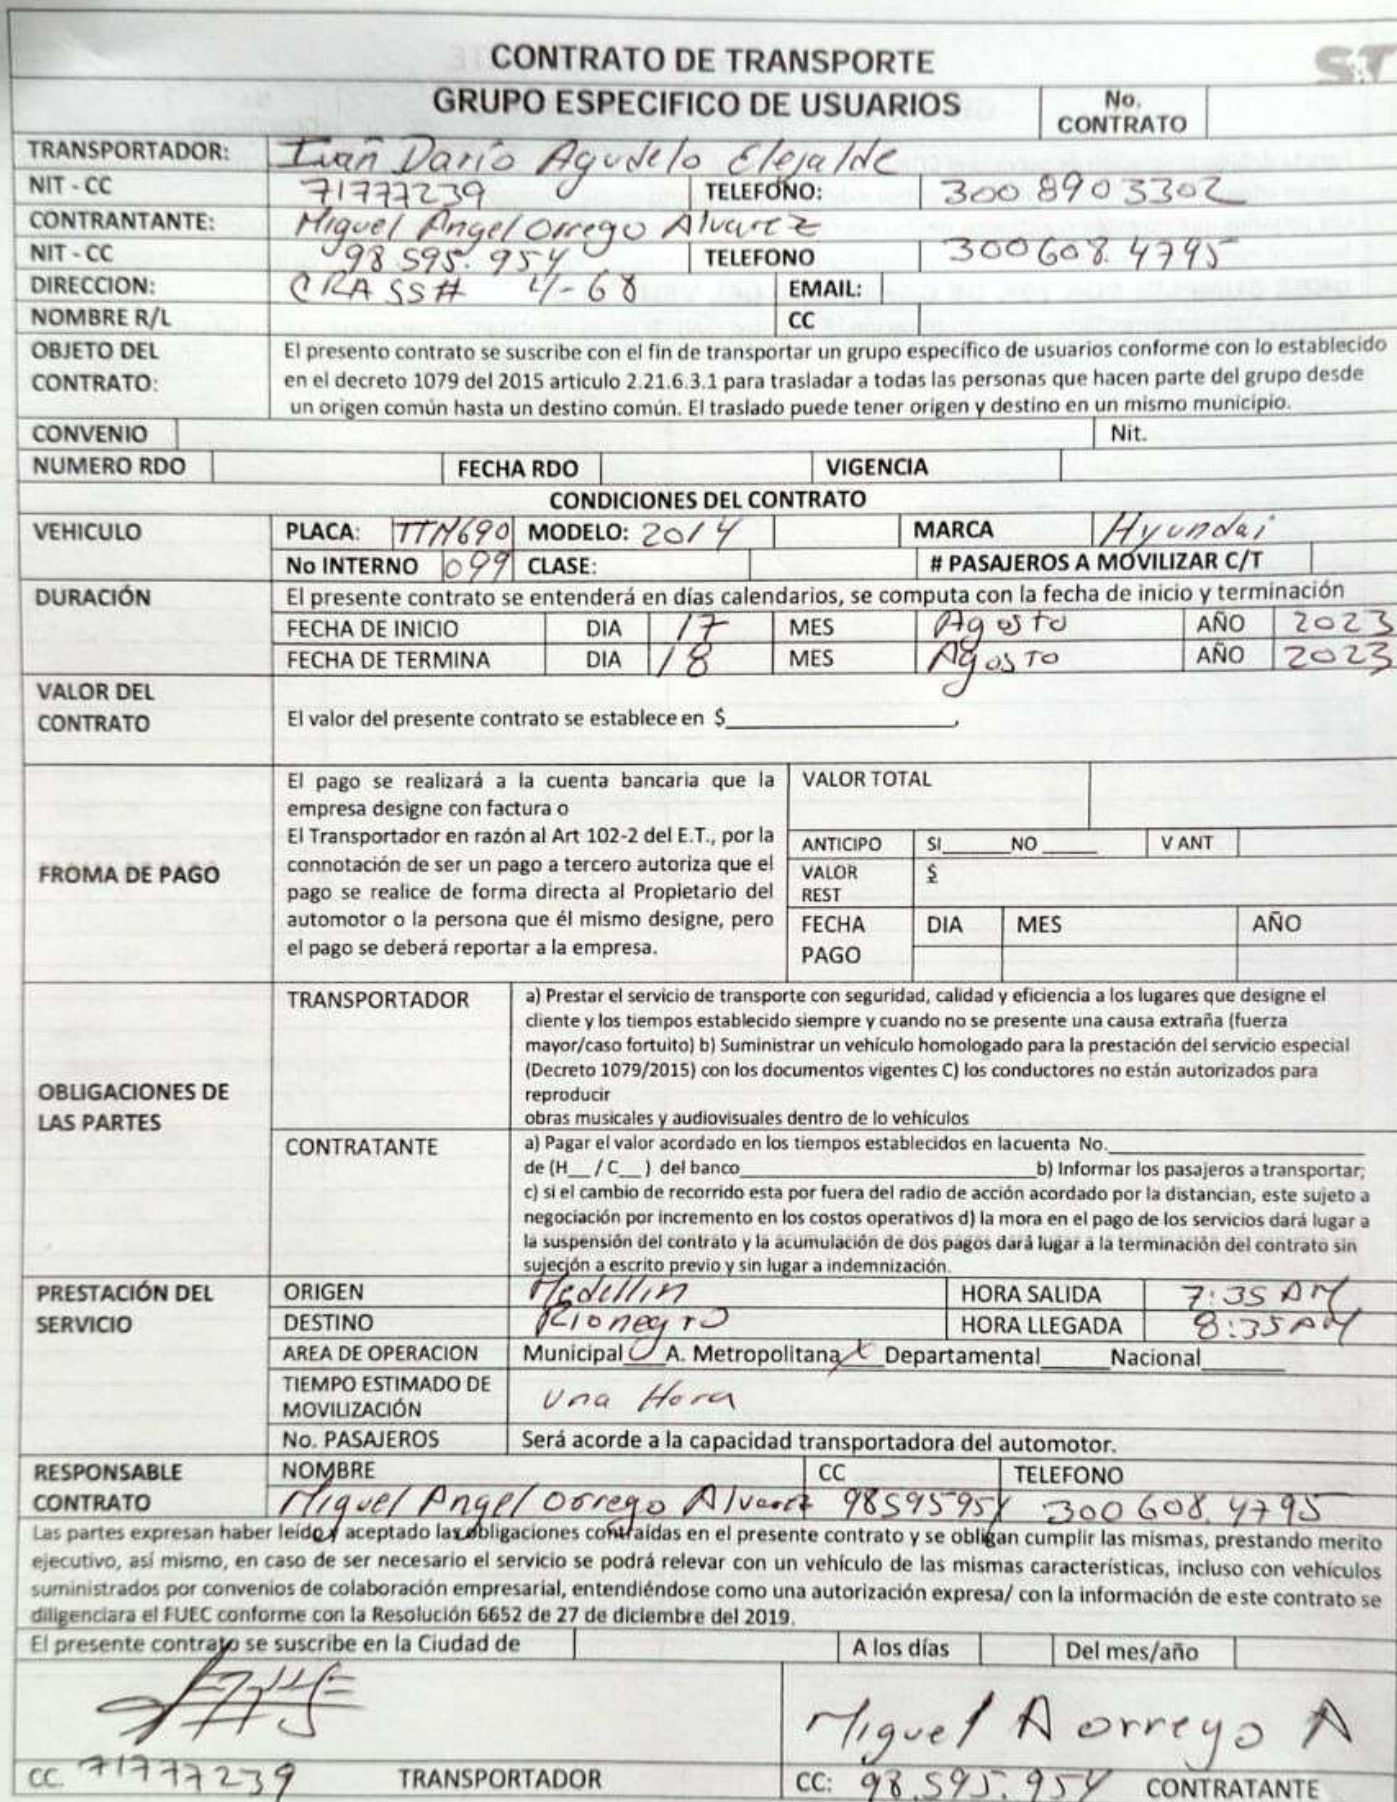 CONTRATO DE TRANSPORTE
GRUPO ESPECIFICO DE USUARIOS No. CONTRATO
TRANSPORTADOR: Ivan Dario Agudelo Elejalde
NIT - CC 71777239 TELEFONO: 300 8903302
CONTRANTANTE: Miguel Angel Orrego Alvarez
NIT - CC 98 595. 954 TELEFONO 300608. 4795
DIRECCION: CRA 55# 4-68 EMAIL:
NOMBRE R/L CC
OBJETO DEL CONTRATO:
El presento contrato se suscribe con el fin de transportar un grupo específico de usuarios conforme con lo establecido
en el decreto 1079 del 2015 articulo 2.21.6.3.1 para trasladar a todas las personas que hacen parte del grupo desde
un origen común hasta un destino común. El traslado puede tener origen y destino en un mismo municipio.
CONVENIO Nit.
NUMERO RDO FECHA RDO VIGENCIA
CONDICIONES DEL CONTRATO
VEHICULO PLACA: TTM690 MODELO: 2014 MARCA Hyundai
No INTERNO 099 CLASE: # PASAJEROS A MOVILIZAR C/T
DURACIÓN El presente contrato se entenderá en días calendarios, se computa con la fecha de inicio y terminación
FECHA DE INICIO DIA 17 MES Agosto AÑO 2023
FECHA DE TERMINA DIA 18 MES Agosto AÑO 2023
VALOR DEL CONTRATO
El valor del presente contrato se establece en $
FROMA DE PAGO
El pago se realizará a la cuenta bancaria que la
empresa designe con factura o
El Transportador en razón al Art 102-2 del E.T., por la
connotación de ser un pago a tercero autoriza que el
pago se realice de forma directa al Propietario del
automotor o la persona que él mismo designe, pero
el pago se deberá reportar a la empresa.
VALOR TOTAL
ANTICIPO SI____ NO ____ V ANT
VALOR REST $
FECHA PAGO DIA MES AÑO
OBLIGACIONES DE LAS PARTES
TRANSPORTADOR
a) Prestar el servicio de transporte con seguridad, calidad y eficiencia a los lugares que designe el
cliente y los tiempos establecido siempre y cuando no se presente una causa extraña (fuerza
mayor/caso fortuito) b) Suministrar un vehículo homologado para la prestación del servicio especial
(Decreto 1079/2015) con los documentos vigentes C) los conductores no están autorizados para
reproducir
obras musicales y audiovisuales dentro de lo vehículos
CONTRATANTE
a) Pagar el valor acordado en los tiempos establecidos en lacuenta No.
de (H__ / C__ ) del banco____ b) Informar los pasajeros a transportar;
c) si el cambio de recorrido esta por fuera del radio de acción acordado por la distancian, este sujeto a
negociación por incremento en los costos operativos d) la mora en el pago de los servicios dará lugar a
la suspensión del contrato y la acumulación de dos pagos dará lugar a la terminación del contrato sin
sujeción a escrito previo y sin lugar a indemnización.
PRESTACIÓN DEL SERVICIO
ORIGEN Medellin HORA SALIDA 7:35 AM
DESTINO Rionegro HORA LLEGADA 8:35 AM
AREA DE OPERACION Municipal____ A. Metropolitana X Departamental____ Nacional____
TIEMPO ESTIMADO DE MOVILIZACIÓN Una Hora
No. PASAJEROS Será acorde a la capacidad transportadora del automotor.
RESPONSABLE CONTRATO NOMBRE CC TELEFONO
Miguel Angel Orrego Alvarez 98595954 300 608. 4795
Las partes expresan haber leído y aceptado las obligaciones contraídas en el presente contrato y se obligan cumplir las mismas, prestando merito
ejecutivo, así mismo, en caso de ser necesario el servicio se podrá relevar con un vehículo de las mismas características, incluso con vehículos
suministrados por convenios de colaboración empresarial, entendiéndose como una autorización expresa/ con la información de este contrato se
diligenciara el FUEC conforme con la Resolución 6652 de 27 de diciembre del 2019.
El presente contrato se suscribe en la Ciudad de A los días Del mes/año
Miguel A Orrego A
CC. 71777239 TRANSPORTADOR CC: 98.595.954 CONTRATANTE